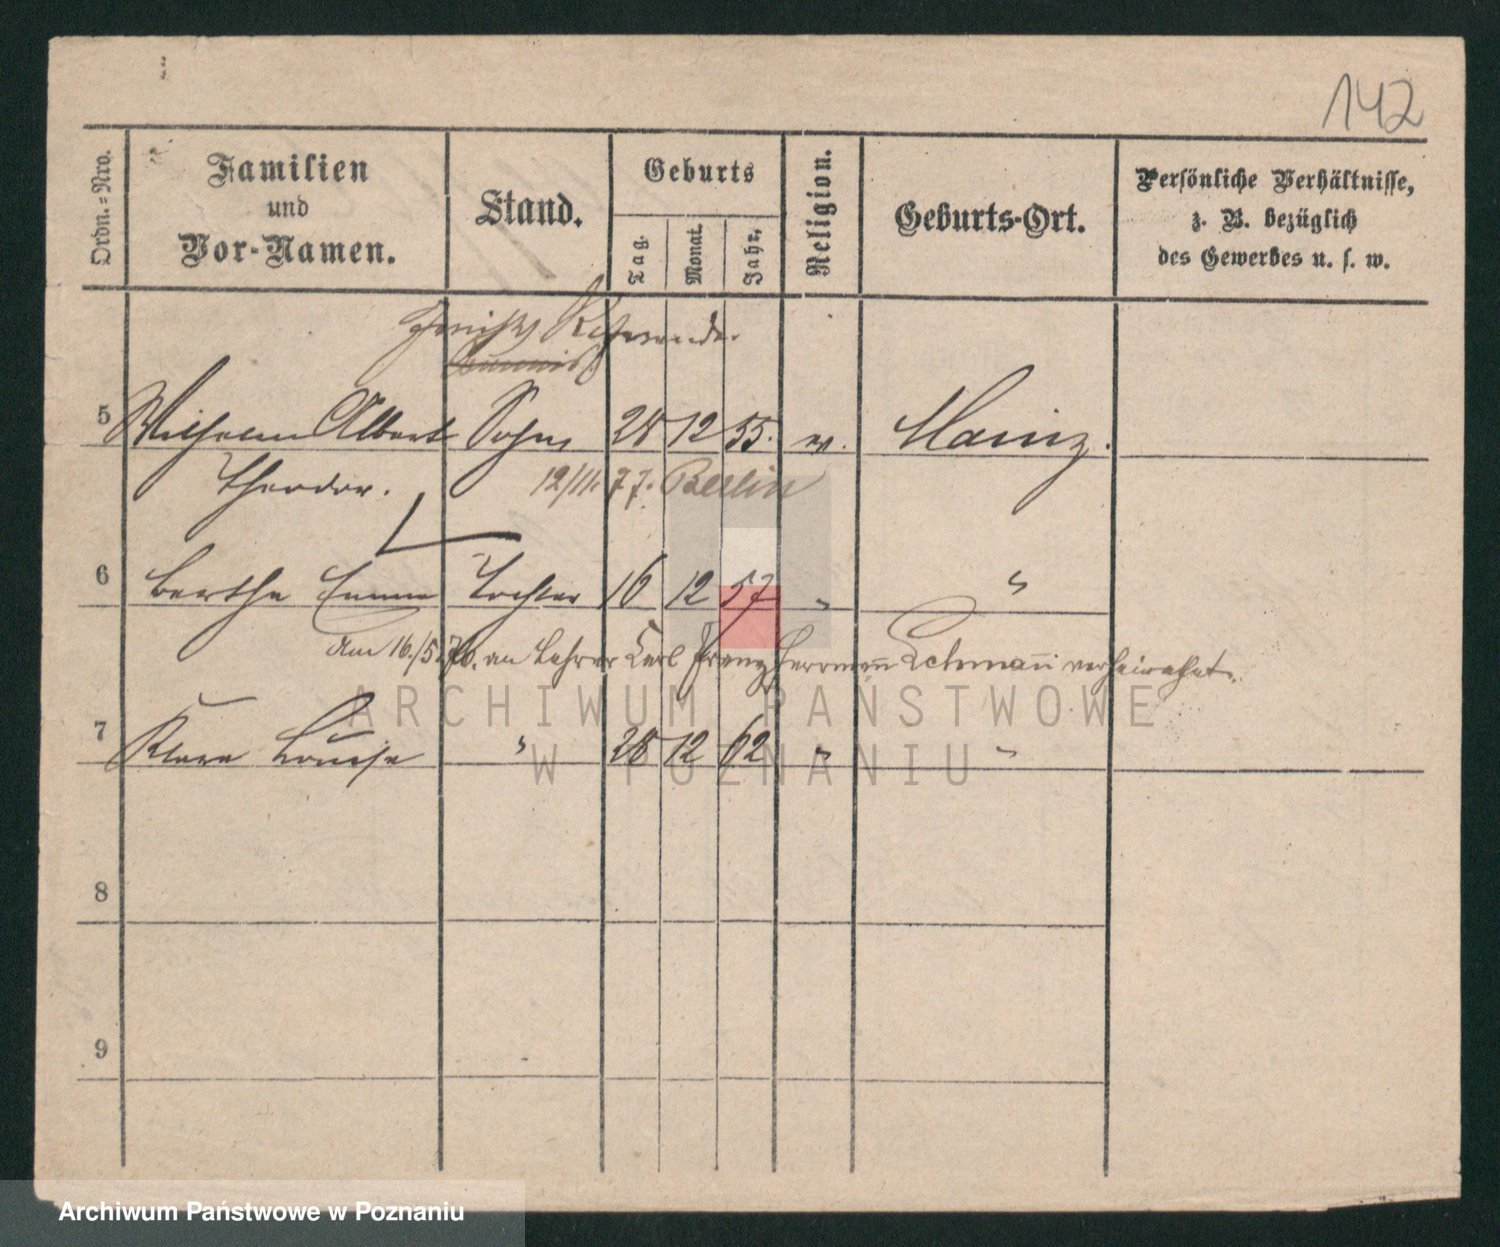 142
Ordn.=Nro.
Familien
und
Vor-Namen.
Stand.
Geburts
Tag.
Monat.
Jahr.
Religion.
Geburts-Ort.
Persönliche Verhältnisse,
z. B. bezüglich
des Gewerbes u. s. w.
Referendar
5 Wilhelm Albert Sohn 28 12 55. ev. Mainz.
Theodor. 12/11. 77. Berlin
6 Bertha Emma Tochter 16 12 57 " "
Am 16./5. 76. an Lehrer Carl Franz Herrmann Lehmann verheirathet.
7 Klara Louise " 28 12 62 " "
8
9
ARCHIWUM PAŃSTWOWE
W POZNANIU
Archiwum Państwowe w Poznaniu